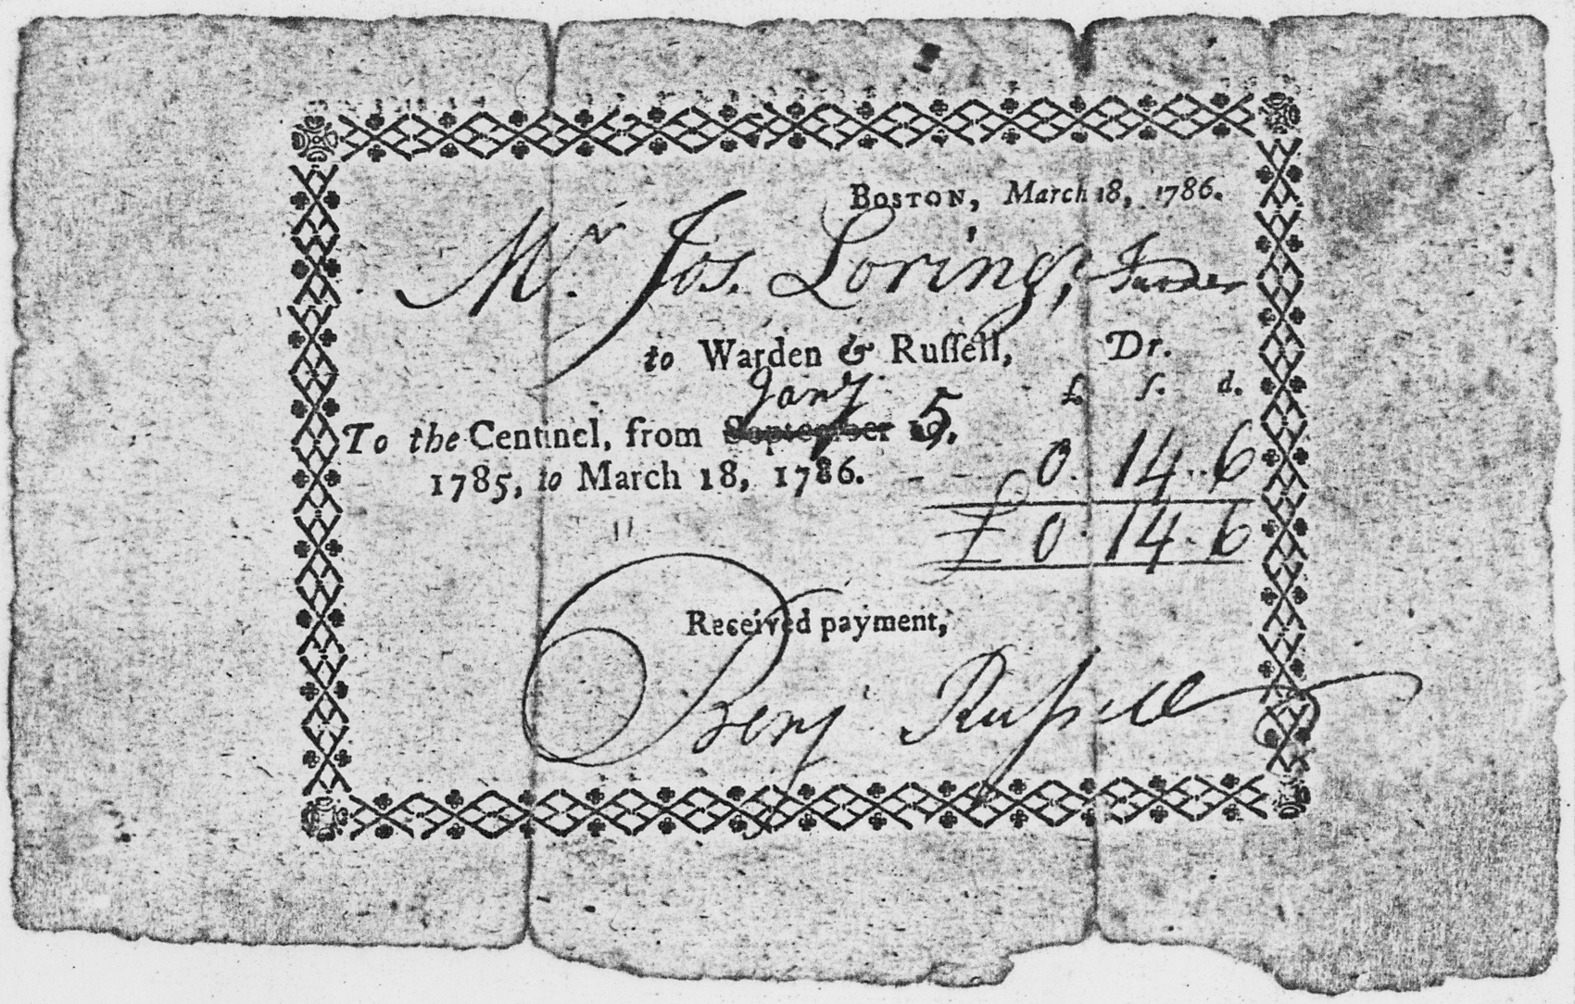 BOSTON, March 18, 1786.
Mr. Jos. Loring,
to Warden & Ruſſell, Dr.
£. ſ. d.
Jany
To the Centinel, from September 5,
1785, to March 18, 1786. - - 0. 14. 6
£ 0. 14. 6
Received payment,
Benj Ruſsell